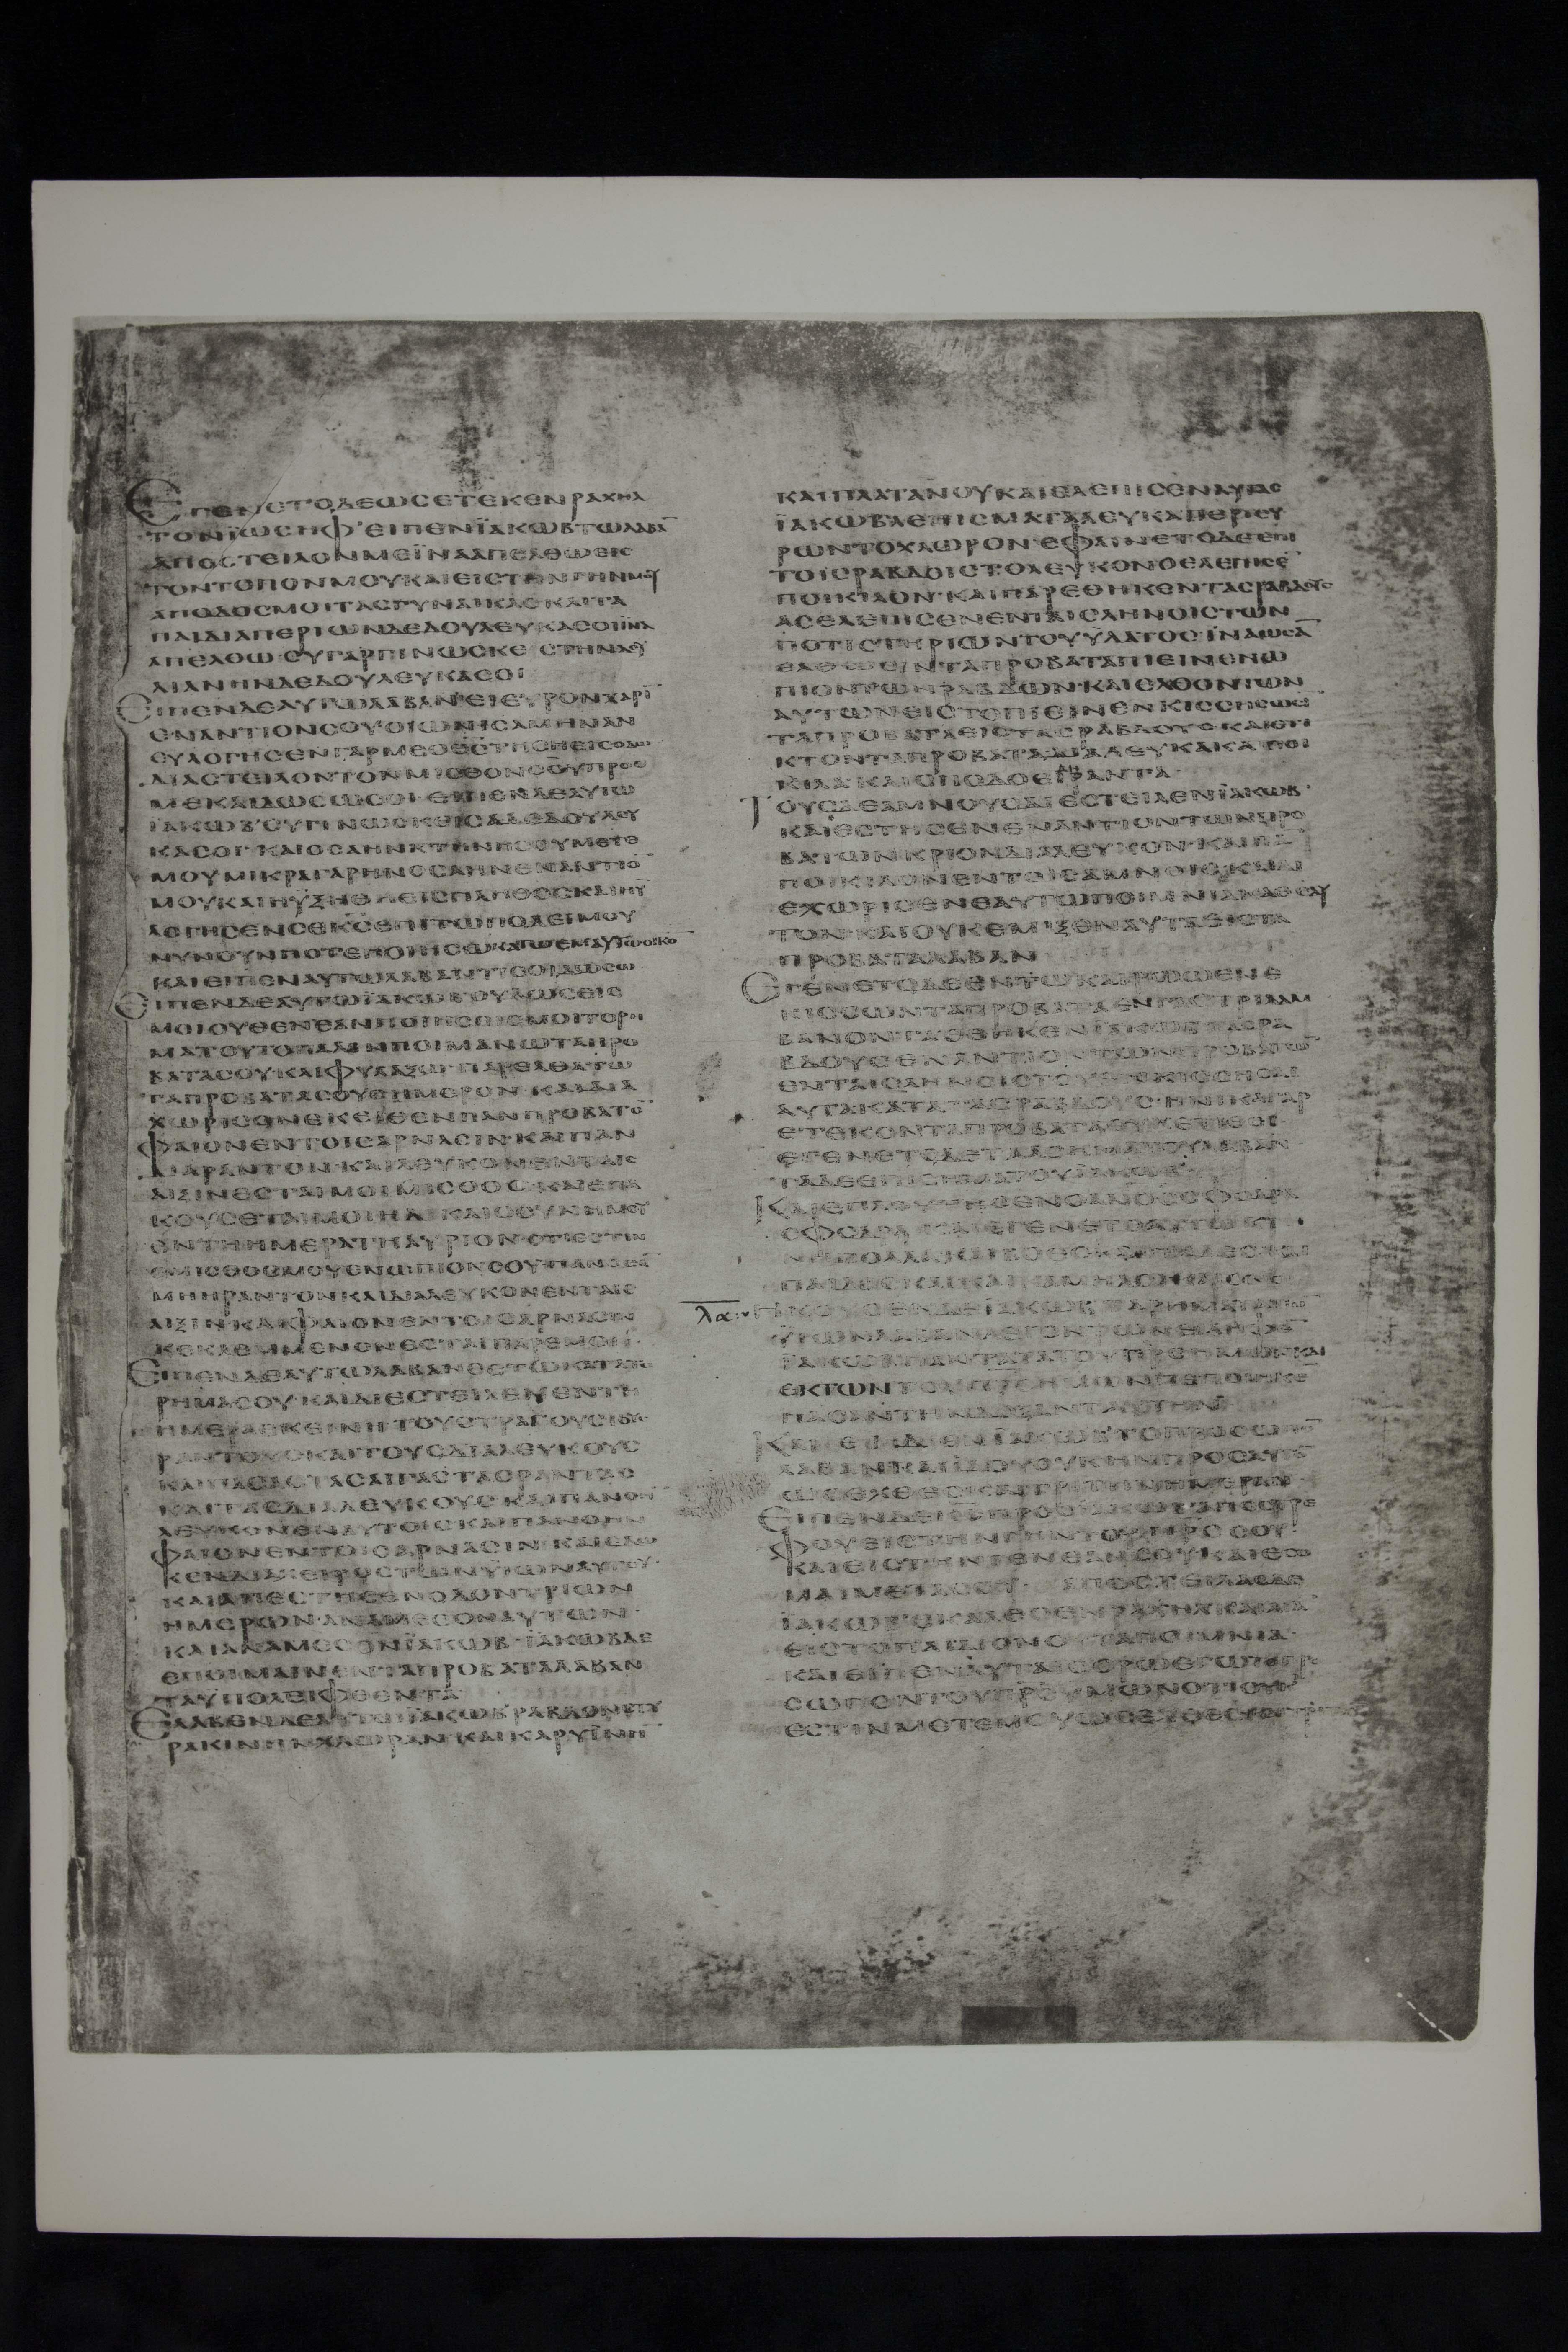 ΕΓΕΝΕΤΟΔΕΩΣΕΤΕΚΕΝΡΑΧΗΛ
ΤΟΝΪΩΣΗΦ·ΕΙΠΕΝΪΑΚΩΒΤΩΛΑΒΑ̅
ΑΠΟΣΤΕΙΛΟΝΜΕΪΝΑΑΠΕΛΘΩΕΙΣ
ΤΟΝΤΟΠΟΝΜΟΥΚΑΙΕΙΣΤΗΝΓΗΝΜΟΥ
ΑΠΟΔΟΣΜΟΙΤΑΣΓΥΝΑΙΚΑΣΚΑΙΤΑ
ΠΑΙΔΙΑΠΕΡΙΩΝΔΕΔΟΥΛΕΥΚΑΣΟΙΪΝΑ
ΑΠΕΛΘΩ·ΣΥΓΑΡΓΙΝΩΣΚΕΙΣΤΗΝΔΟΥ
ΛΙΑΝΗΝΔΕΔΟΥΛΕΥΚΑΣΟΙ
ΕΙΠΕΝΔΕΑΥΤΩΛΑΒΑΝ·ΕΙΕΥΡΟΝΧΑΡΙ̅
ΕΝΑΝΤΙΟΝΣΟΥΟΙΩΝΙΣΑΜΗΝΑΝ
ΕΥΛΟΓΗΣΕΝΓΑΡΜΕΟΘΣΤΗΣΗΕΙΣΟΔΩ
ΔΙΑΣΤΕΙΛΟΝΤΟΝΜΙΣΘΟΝΣΟΥΠΡΟΣ
ΜΕΚΑΙΔΩΣΩΣΟΙ·ΕΙΠΕΝΔΕΑΥΤΩ
ΪΑΚΩΒ·ΣΥΓΙΝΩΣΚΕΙΣΑΔΕΔΟΥΛΕΥ
ΚΑΣΟΙ·ΚΑΙΟΣΑΗΝΚΤΗΝΗΣΟΥΜΕΤΕ
ΜΟΥΜΙΚΡΑΓΑΡΗΝΟΣΑΗΝΕΝΑΝΤΙΟ̅
ΜΟΥΚΑΙΗΥΞΗΘΗΕΙΣΠΛΗΘΟΣΚΑΙΗΥ
ΛΟΓΗΣΕΝΣΕΚΣΕΠΙΤΩΠΟΔΕΙΜΟΥ
ΝΥΝΟΥΝΠΟΤΕΠΟΙΗΣΩΚΑΓΩΕΜΑΥΤΩΟΙΚΟ̅
ΚΑΙΕΙΠΕΝΑΥΤΩΛΑΒΑΝΤΙΣΟΙΔΩΣΩ
ΕΙΠΕΝΔΕΑΥΤΩΪΑΚΩΒΟΥΔΩΣΕΙΣ
ΜΟΙΟΥΘΕΝΕΑΝΠΟΙΗΣΕΙΣΜΟΙΤΟΡΗ
ΜΑΤΟΥΤΟΠΑΛΙΝΠΟΙΜΑΝΩΤΑΠΡΟ
ΒΑΤΑΣΟΥΚΑΙΦΥΛΑΞΩ·ΠΑΡΕΛΘΑΤΩ
ΤΑΠΡΟΒΑΤΑΣΟΥΣΗΜΕΡΟΝ·ΚΑΙΔΙΑ
ΧΩΡΙΣΟΝΕΚΕΙΘΕΝΠΑΝΠΡΟΒΑΤΟ̅
ΦΑΙΟΝΕΝΤΟΙΣΑΡΝΑΣΙΝ·ΚΑΙΠΑΝ
ΔΙΑΡΑΝΤΟΝ·ΚΑΙΛΕΥΚΟΝΕΝΤΑΙΣ
ΑΙΞΙΝΕΣΤΑΙΜΟΙΜΙΣΘΟΣ·ΚΑΙΕΠΑ
ΚΟΥΣΕΤΑΙΜΟΙΗΔΙΚΑΙΟΣΥΝΗΜΟΥ
ΕΝΤΗΗΜΕΡΑΤΗΑΥΡΙΟΝΟΤΙΕΣΤΙΝ
ΟΜΙΣΘΟΣΜΟΥΕΝΩΠΙΟΝΣΟΥΠΑΝΟΕΑ̅
ΜΗΗΡΑΝΤΟΝΚΑΙΔΙΑΛΕΥΚΟΝΕΝΤΑΙΣ
ΑΙΞΙΝΚΑΙΦΑΙΟΝΕΝΤΟΙΣΑΡΝΑΣΙΝ
ΚΕΚΛΕΜΜΕΝΟΝΕΣΤΑΙΠΑΡΕΜΟΙ
ΕΙΠΕΝΔΕΑΥΤΩΛΑΒΑΝΕΣΤΩΚΑΤΑΤΟ
ΡΗΜΑΣΟΥΚΑΙΔΙΕΣΤΕΙΛΕΝΕΝΤΗ
ΗΜΕΡΑΕΚΕΙΝΗΤΟΥΣΤΡΑΓΟΥΣΤΟΥΣ
ΡΑΝΤΟΥΣΚΑΙΤΟΥΣΔΙΑΛΕΥΚΟΥΣ
ΚΑΙΠΑΣΑΣΤΑΣΑΙΓΑΣΤΑΣΡΑΝΤΑΣ
ΚΑΙΤΑΣΔΙΑΛΕΥΚΟΥΣΚΑΙΠΑΝΟΗΝ
ΛΕΥΚΟΝΕΝΑΥΤΟΙΣΚΑΙΠΑΝΟΗΝ
ΦΑΙΟΝΕΝΤΟΙΣΑΡΝΑΣΙΝ·ΚΑΙΕΔΩ
ΚΕΝΔΙΑΧΕΙΡΟΣΤΩΝΥΙΩΝΑΥΤΟΥ
ΚΑΙΑΠΕΣΤΗΣΕΝΟΔΟΝΤΡΙΩΝ
ΗΜΕΡΩΝ·ΑΝΑΜΕΣΟΝΑΥΤΩΝ
ΚΑΙΑΝΑΜΕΣΟΝΪΑΚΩΒ·ΪΑΚΩΒΔΕ
ΕΠΟΙΜΑΙΝΕΝΤΑΠΡΟΒΑΤΑΛΑΒΑΝ
ΤΑΥΠΟΛΕΙΦΘΕΝΤΑ
ΕΛΑΒΕΝΔΕΑΥΤΩΪΑΚΩΒΡΑΒΔΟΝΣΤΥ
ΡΑΚΙΝΗΝΧΛΩΡΑΝΚΑΙΚΑΡΥΪΝΗ̅
ΚΑΙΠΛΑΤΑΝΟΥΚΑΙΕΛΕΠΙΣΕΝΑΥΤΑΣ
ΪΑΚΩΒΛΕΠΙΣΜΑΤΑΛΕΥΚΑΠΕΡΙΣΥ
ΡΩΝΤΟΧΛΩΡΟΝ·ΕΦΑΙΝΕΤΟΔΕΕΠΙ
ΤΟΙΣΡΑΒΔΟΙΣΤΟΛΕΥΚΟΝΟΕΛΕΠΙΣΕ̅
ΠΟΙΚΙΛΟΝ·ΚΑΙΠΑΡΕΘΗΚΕΝΤΑΣΡΑΒΔΟΥΣ
ΑΣΕΛΕΠΙΣΕΝΕΝΤΑΙΣΛΗΝΟΙΣΤΩΝ
ΠΟΤΙΣΤΗΡΙΩΝΤΟΥΫΔΑΤΟΣ·ΪΝΑΩΣΑ̅
ΕΛΘΩΣΙΝΤΑΠΡΟΒΑΤΑΠΙΕΙΝΕΝΩ
ΠΙΟΝΤΩΝΡΑΒΔΩΝ·ΚΑΙΕΛΘΟΝΤΩΝ
ΑΥΤΩΝΕΙΣΤΟΠΙΕΙΝΕΝΚΙΣΣΗΣΩΣΙ
ΤΑΠΡΟΒΑΤΑΕΙΣΤΑΣΡΑΒΔΟΥΣΚΑΙΕΤΙ
ΚΤΟΝΤΑΠΡΟΒΑΤΑΔΙΑΛΕΥΚΑΚΑΙΠΟΙ
ΚΙΛΑΚΑΙΣΠΟΔΟΕΙΔΗΡΑΝΤΑ
ΤΟΥΣΔΕΑΜΝΟΥΣΔΙΕΣΤΕΙΛΕΝΪΑΚΩΒ·
ΚΑΙΕΣΤΗΣΕΝΕΝΑΝΤΙΟΝΤΩΝΠΡΟ
ΒΑΤΩΝΚΡΙΟΝΔΙΑΛΕΥΚΟΝ·ΚΑΙΠΑ̅
ΠΟΙΚΙΛΟΝΕΝΤΟΙΣΑΜΝΟΙΣ·ΚΑΙΔΙ
ΕΧΩΡΙΣΕΝΕΑΥΤΩΠΟΙΜΝΙΑΚΑΘΕΑΥ
ΤΟΝ·ΚΑΙΟΥΚΕΜΙΞΕΝΑΥΤΑΕΙΣΤΑ
ΠΡΟΒΑΤΑΛΑΒΑΝ
ΕΓΕΝΕΤΟΔΕΕΝΤΩΚΑΙΡΩΩΕΝΕ
ΚΙΣΣΩΝΤΑΠΡΟΒΑΤΑΕΝΓΑΣΤΡΙΛΑΜ
ΒΑΝΟΝΤΑΕΘΗΚΕΝΪΑΚΩΒΤΑΣΡΑ
ΒΔΟΥΣΕΝΑΝΤΙΟΝΤΩΝΠΡΟΒΑΤΩ̅
ΕΝΤΑΙΣΛΗΝΟΙΣΤΟΥΕΝΚΙΣΣΗΣΑΙ
ΑΥΤΑΚΑΤΑΤΑΣΡΑΒΔΟΥΣ·ΗΝΙΚΑΓΑΡ
ΕΤΕΚΟΝΤΑΠΡΟΒΑΤΑΟΥΚΕΤΙΘΕΙ·
ΕΓΕΝΕΤΟΔΕΤΑΑΣΗΜΑΤΟΥΛΑΒΑΝ
ΤΑΔΕΕΠΙΣΗΜΑΤΟΥΪΑΚΩΒ
ΚΑΙΕΠΛΟΥΤΗΣΕΝΟΑΝΟΣΣΦΟΔΡΑ
ΣΦΟΔΡΑ·ΚΑΙΕΓΕΝΕΤΟΑΥΤΩΚΤΗ
ΠΑΙΔΕΣΚΑΙΚΑΜΗΛΟΙΚΑΙΟΝΟΙ
λα ΗΚΟΥΣΕΝΔΕΪΑΚΩΒΤΑΡΗΜΑΤΑΤΩ̅
ΥΙΩΝΛΑΒΑΝΛΕΓΟΝΤΩΝΕΙΛΗΦΕ̅
ΪΑΚΩΒΠΑΝΤΑΤΑΤΟΥΠΡΣΗΜΩΝΚΑΙ
ΕΚΤΩΝΤΟΥΠΡΣΗΜΩΝΠΕΠΟΙΗΚΕ
ΠΑΣΑΝΤΗΝΔΟΞΑΝΤΑΥΤΗΝ
ΚΑΙΕΙΔΕΝΪΑΚΩΒΤΟΠΡΟΣΩΠΟ̅
ΛΑΒΑΝΚΑΙΪΔΟΥΟΥΚΗΝΠΡΟΣΑΥΤΟ̅
ΩΣΕΧΘΕΣΚΑΙΤΡΙΤΗΝΗΜΕΡΑΝ
ΕΙΠΕΝΔΕΚΣΠΡΟΣΪΑΚΩΒΑΠΟΣΤΡΕ
ΦΟΥΕΙΣΤΗΝΓΗΝΤΟΥΠΡΣΣΟΥ
ΚΑΙΕΙΣΤΗΝΓΕΝΕΑΝΣΟΥΚΑΙΕΣΟ
ΜΑΙΜΕΤΑΣΟΥ· ΑΠΟΣΤΕΙΛΑΣΔΕ
ΪΑΚΩΒΕΚΑΛΕΣΕΝΡΑΧΗΛΚΑΙΛΕΙΑ̅
ΕΙΣΤΟΠΑΙΔΙΟΝΟΥΤΑΠΟΙΜΝΙΑ·
ΚΑΙΕΙΠΕΝΑΥΤΑΙΣΟΡΩΕΓΩΤΟΠΡΟ
ΣΩΠΟΝΤΟΥΠΡΣΥΜΩΝΟΤΙΟΥΚ
ΕΣΤΙΝΜΕΤΕΜΟΥΩΣΕΧΘΕΣ